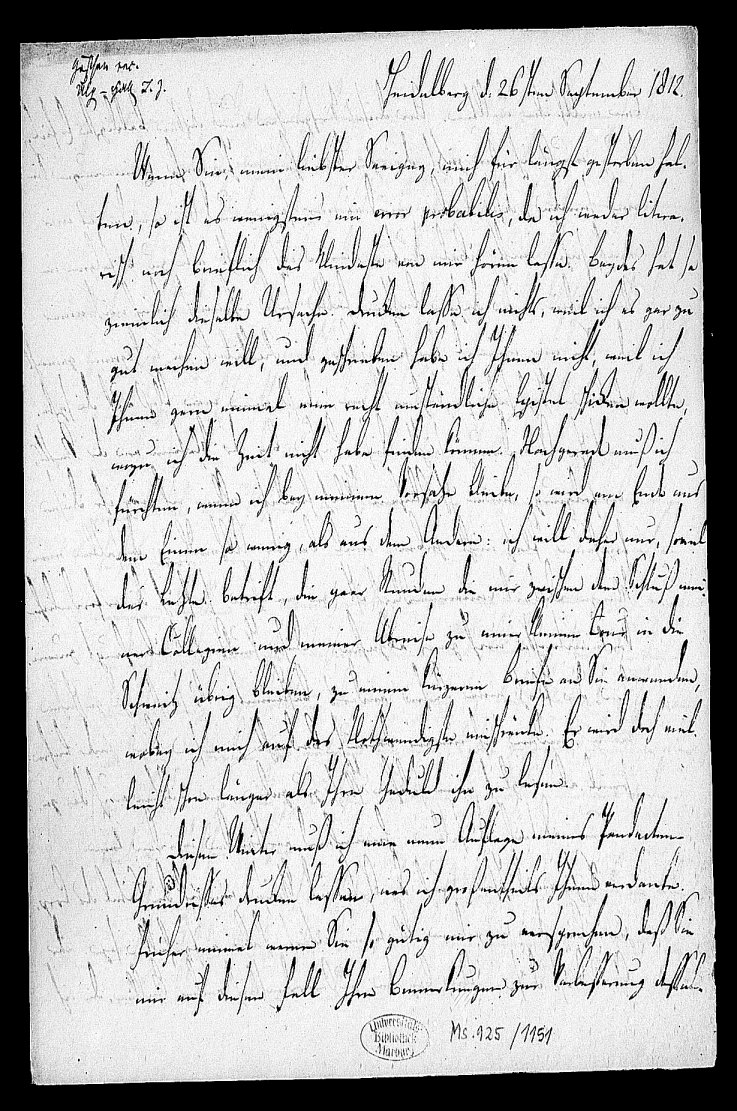 Heidelberg d. 26sten September 1812.
Wenn Sie, mein liebster Savigny, mich für längst gestorben hal-
ten, so ist es wenigstens ein error probabilis, da ich weder litera-
risch noch brieflich das Mindeste von mir hören lasse. Beydes hat so
ziemlich dieselbe Ursache. Drucken lasse ich nichts, weil ich es gar zu
gut machen will, und geschrieben habe ich Ihnen nicht, weil ich
Ihnen gern einmal eine recht anständige Epistel schicken wollte,
wozu ich die Zeit nicht habe finden können. Nachgerade muß ich
fürchten, wenn ich bey meinem Vorsatze bleibe, so wird am Ende aus
dem Einen so wenig, als aus dem Andern: ich will daher nur, soviel
das Letzte betrift, die paar Stunden die mir zwischen dem Schluß mei-
ner Collegien und meiner Abreise zu einer kleinen Tour in die
Schweitz übrig bleiben, zu einem kürzeren Briefe an Sie anwenden,
wobey ich mich auf das Nothwendigste einschränke. Er wird doch viel-
leicht schon länger als Ihre Geduld ihn zu lesen.
Diesen Winter muß ich eine neue Auflage meines Pandecten-
Grundrisses drucken lassen, was ich großentheils Ihnen verdanke.
Früher einmal waren Sie so gütig mir zu versprechen, daß Sie
mir auf diesen Fall Ihre Bemerkungen zur Verbesserung dessel-
Universitäts-
Bibliothek
Marburg
Ms. 925/1151